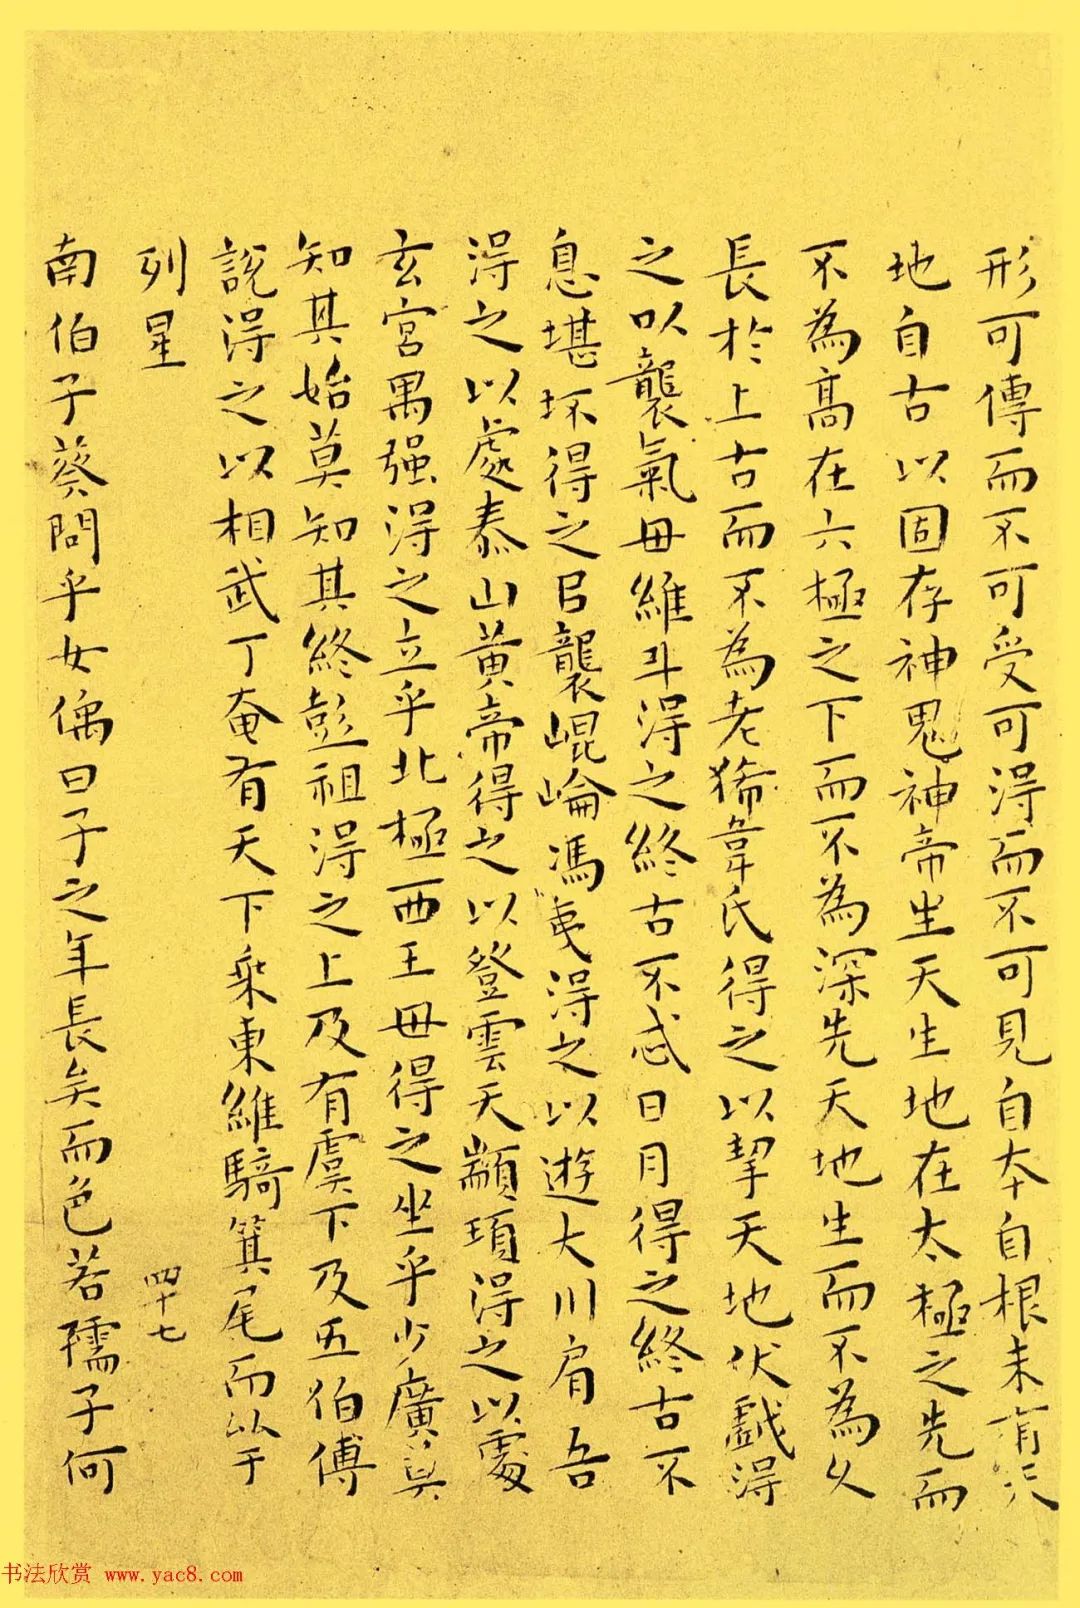 形可傳而不可受可淂而不可見自本自根未有天
地自古以固存神鬼神帝生天生地在太極之先而
不為髙在六極之下而不為深先天地生而不為久
長於上古而不為老狶韋氏得之以挈天地伏戲得
之以襲氣毋維斗淂之終古不忒日月得之終古不
息堪坏得之㠯襲崐崘馮夷淂之以遊大川肩吾
淂之以處泰山黃帝得之以登雲天顓頊淂之以處
玄宮禺强淂之立乎北極西王毋得之坐乎少廣莫
知其始莫知其終彭祖淂之上及有虞下及五伯傅
說淂之以相武丁奄有天下乘東維騎箕尾而比于
列星
四十七
南伯子葵問乎女偊曰子之年長矣而色若孺子何
书法欣赏 www.yac8.com